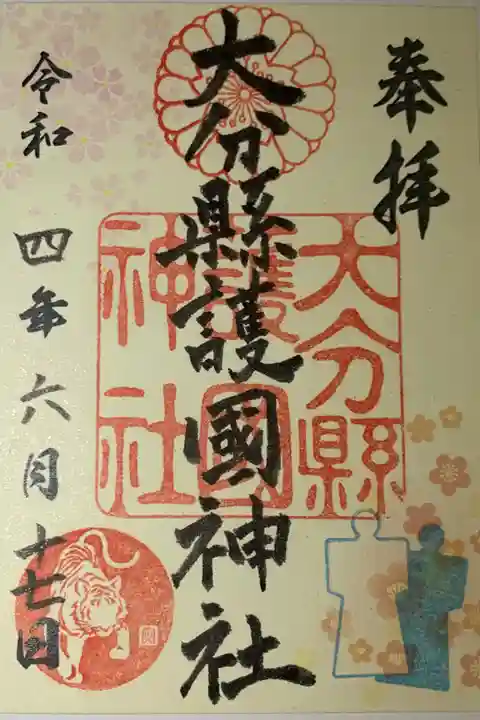 奉拝
大分縣護國神社
大分縣
護國
神社
令和四年六月十七日